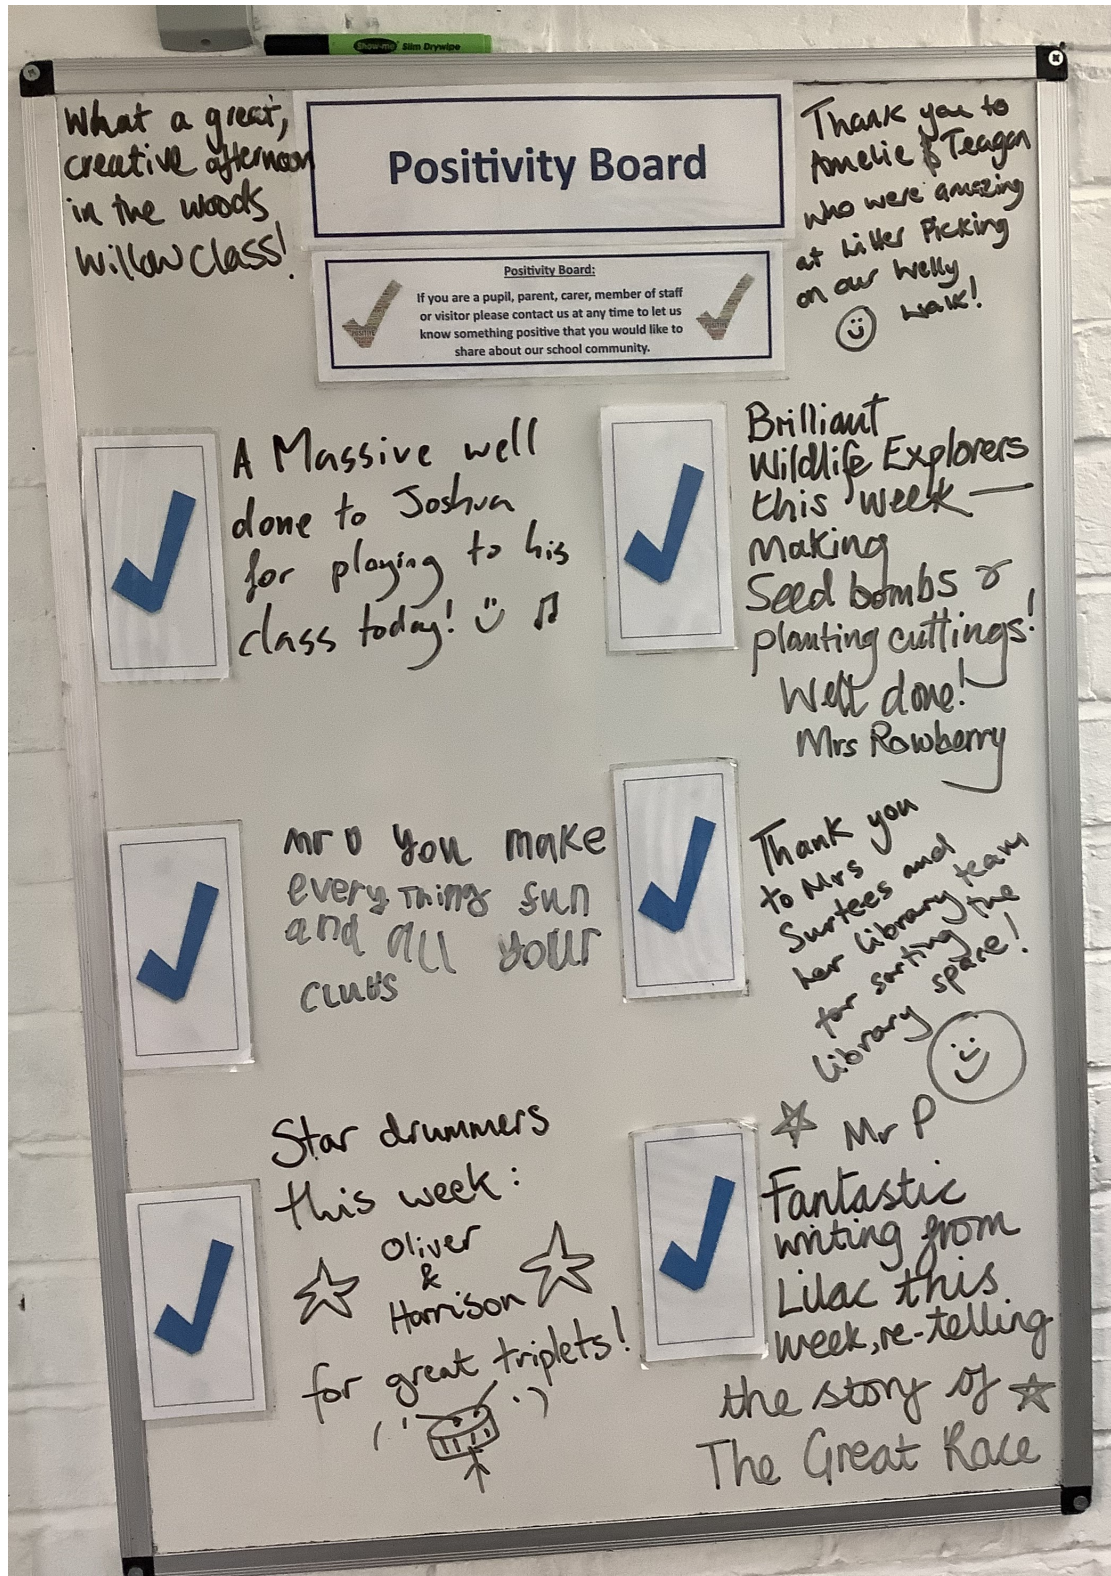 Show-me Slim Drywipe
What a great,
creative afternoon
in the woods
Willow Class!
Positivity Board
Positivity Board:
If you are a pupil, parent, carer, member of staff
or visitor please contact us at any time to let us
know something positive that you would like to
share about our school community.
Thank you to
Amelie & Teagan
who were amazing
at Litter Picking
on our Welly
walk!
A Massive well
done to Joshua
for playing to his
class today!
Brilliant
Wildlife Explorers
this week —
Making
Seed bombs &
planting cuttings!
Well done!
Mrs Rowberry
mr D you make
every Thing fun
and all your
clubs
Thank you
to Mrs
Surtees and
her library team
for sorting the
library space!
Star drummers
this week:
Oliver
&
Harrison
for great triplets!
Mr P
Fantastic
writing from
Lilac this
week, re-telling
the story of
The Great Race